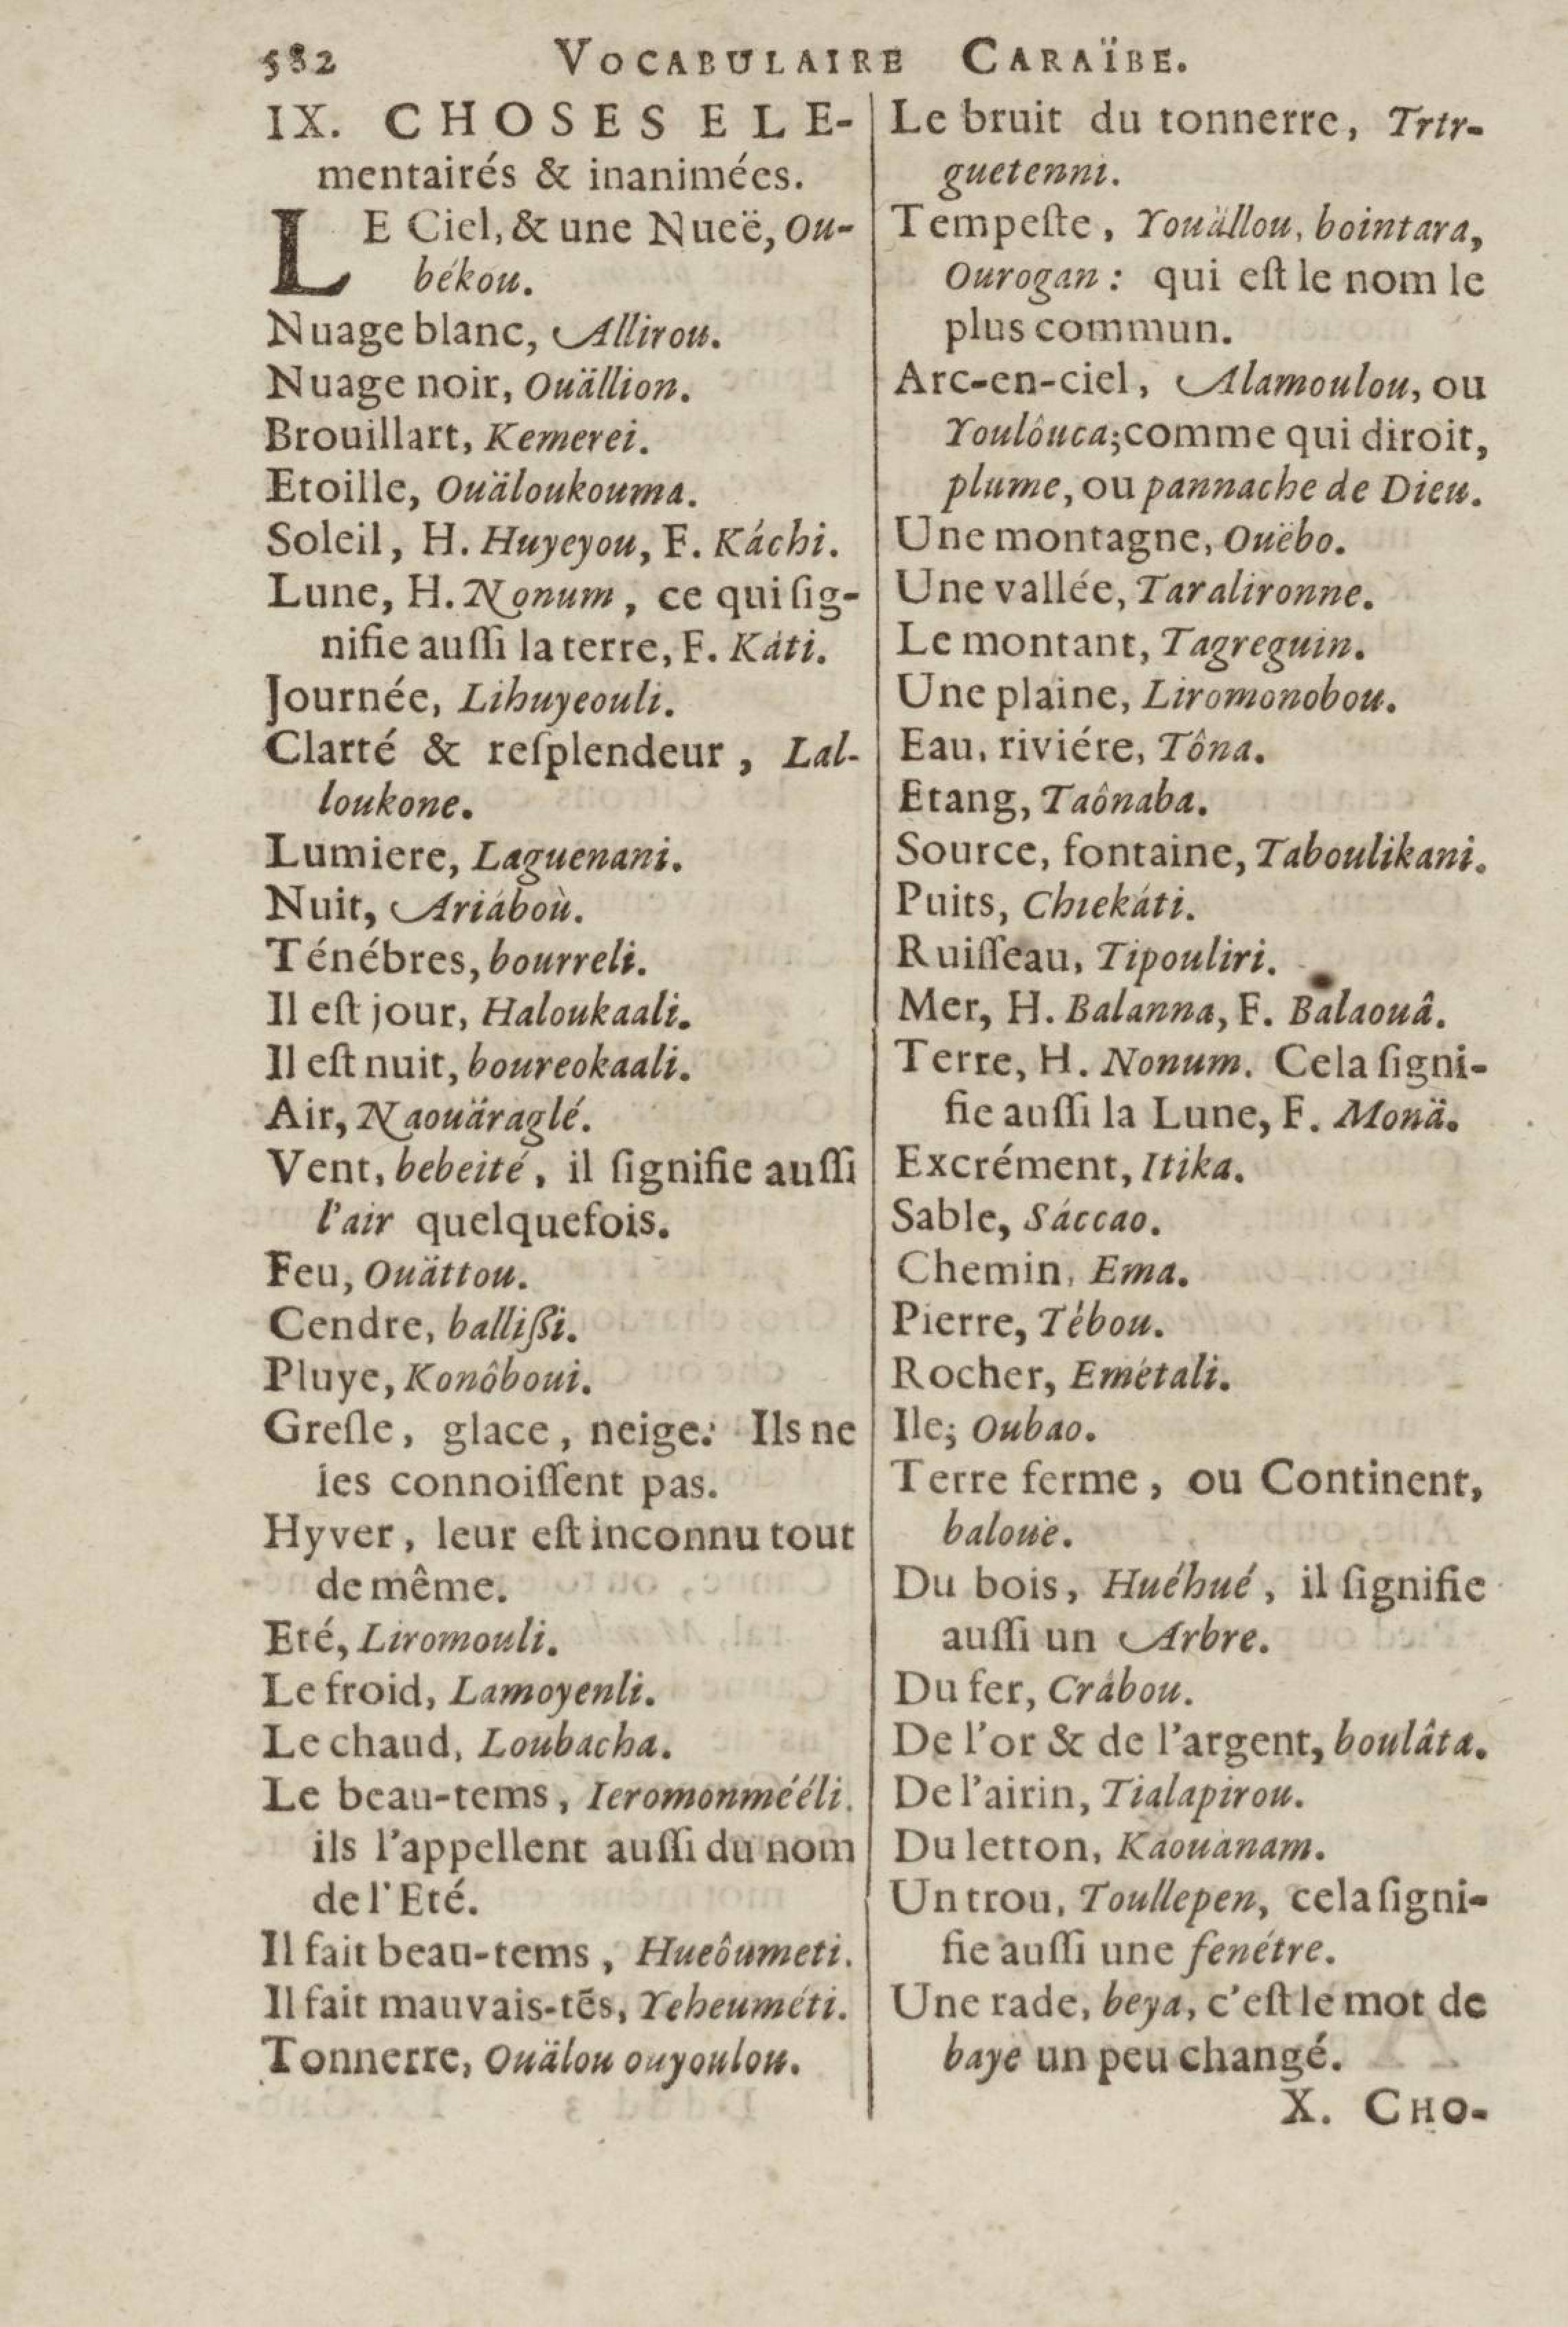 582 VOCABULAIRE CARAÏBE.
IX. CHOSES ELE-
mentairés & inanimées.
LE Ciel, & une Nueë, Ou-
békou.
Nuage blanc, Allirou.
Nuage noir, Ouällion.
Brouillart, Kemerei.
Etoille, Ouäloukouma.
Soleil, H. Huyeyou, F. Káchi.
Lune, H. Nonum, ce qui ſig-
nifie auſſi la terre, F. Káti.
Journée, Lihuyeouli.
Clarté & reſplendeur, Lal-
loukone.
Lumiere, Laguenani.
Nuit, Ariáboù.
Ténébres, bourreli.
Il eſt jour, Haloukaali.
Il eſt nuit, boureokaali.
Air, Naouäraglé.
Vent, bebeité, il ſignifie auſſi
l'air quelquefois.
Feu, Ouättou.
Cendre, balliſſi.
Pluye, Konôboui.
Greſle, glace, neige: Ils ne
les connoiſſent pas.
Hyver, leur eſt inconnu tout
de même.
Eté, Liromouli.
Le froid, Lamoyenli.
Le chaud, Loubacha.
Le beau-tems, Ieromonmééli.
ils l'appellent auſſi du nom
de l'Eté.
Il fait beau-tems, Hueôumeti.
Il fait mauvais-tẽs, Yeheuméti.
Tonnerre, Ouälou ouyoulou.
Le bruit du tonnerre, Trtr-
guetenni.
Tempeſte, Youällou, bointara,
Ourogan: qui eſt le nom le
plus commun.
Arc-en-ciel, Alamoulou, ou
Youlôuca; comme qui diroit,
plume, ou pannache de Dieu.
Une montagne, Ouëbo.
Une vallée, Taralironne.
Le montant, Tagreguin.
Une plaine, Liromonobou.
Eau, riviére, Tôna.
Etang, Taônaba.
Source, fontaine, Taboulikani.
Puits, Chiekáti.
Ruiſſeau, Tipouliri.
Mer, H. Balanna, F. Balaouâ.
Terre, H. Nonum. Cela ſigni-
fie auſſi la Lune, F. Monä.
Excrément, Itika.
Sable, Sáccao.
Chemin, Ema.
Pierre, Tébou.
Rocher, Emétali.
Ile; Oubao.
Terre ferme, ou Continent,
baloüe.
Du bois, Huéhué, il ſignifie
auſſi un Arbre.
Du fer, Crábou.
De l'or & de l'argent, boulâta.
De l'airin, Tialapirou.
Du letton, Káouanam.
Un trou, Toullepen, cela ſigni-
fie auſſi une fenétre.
Une rade, beya, c'eſt le mot de
baye un peu changé.
X. CHO-